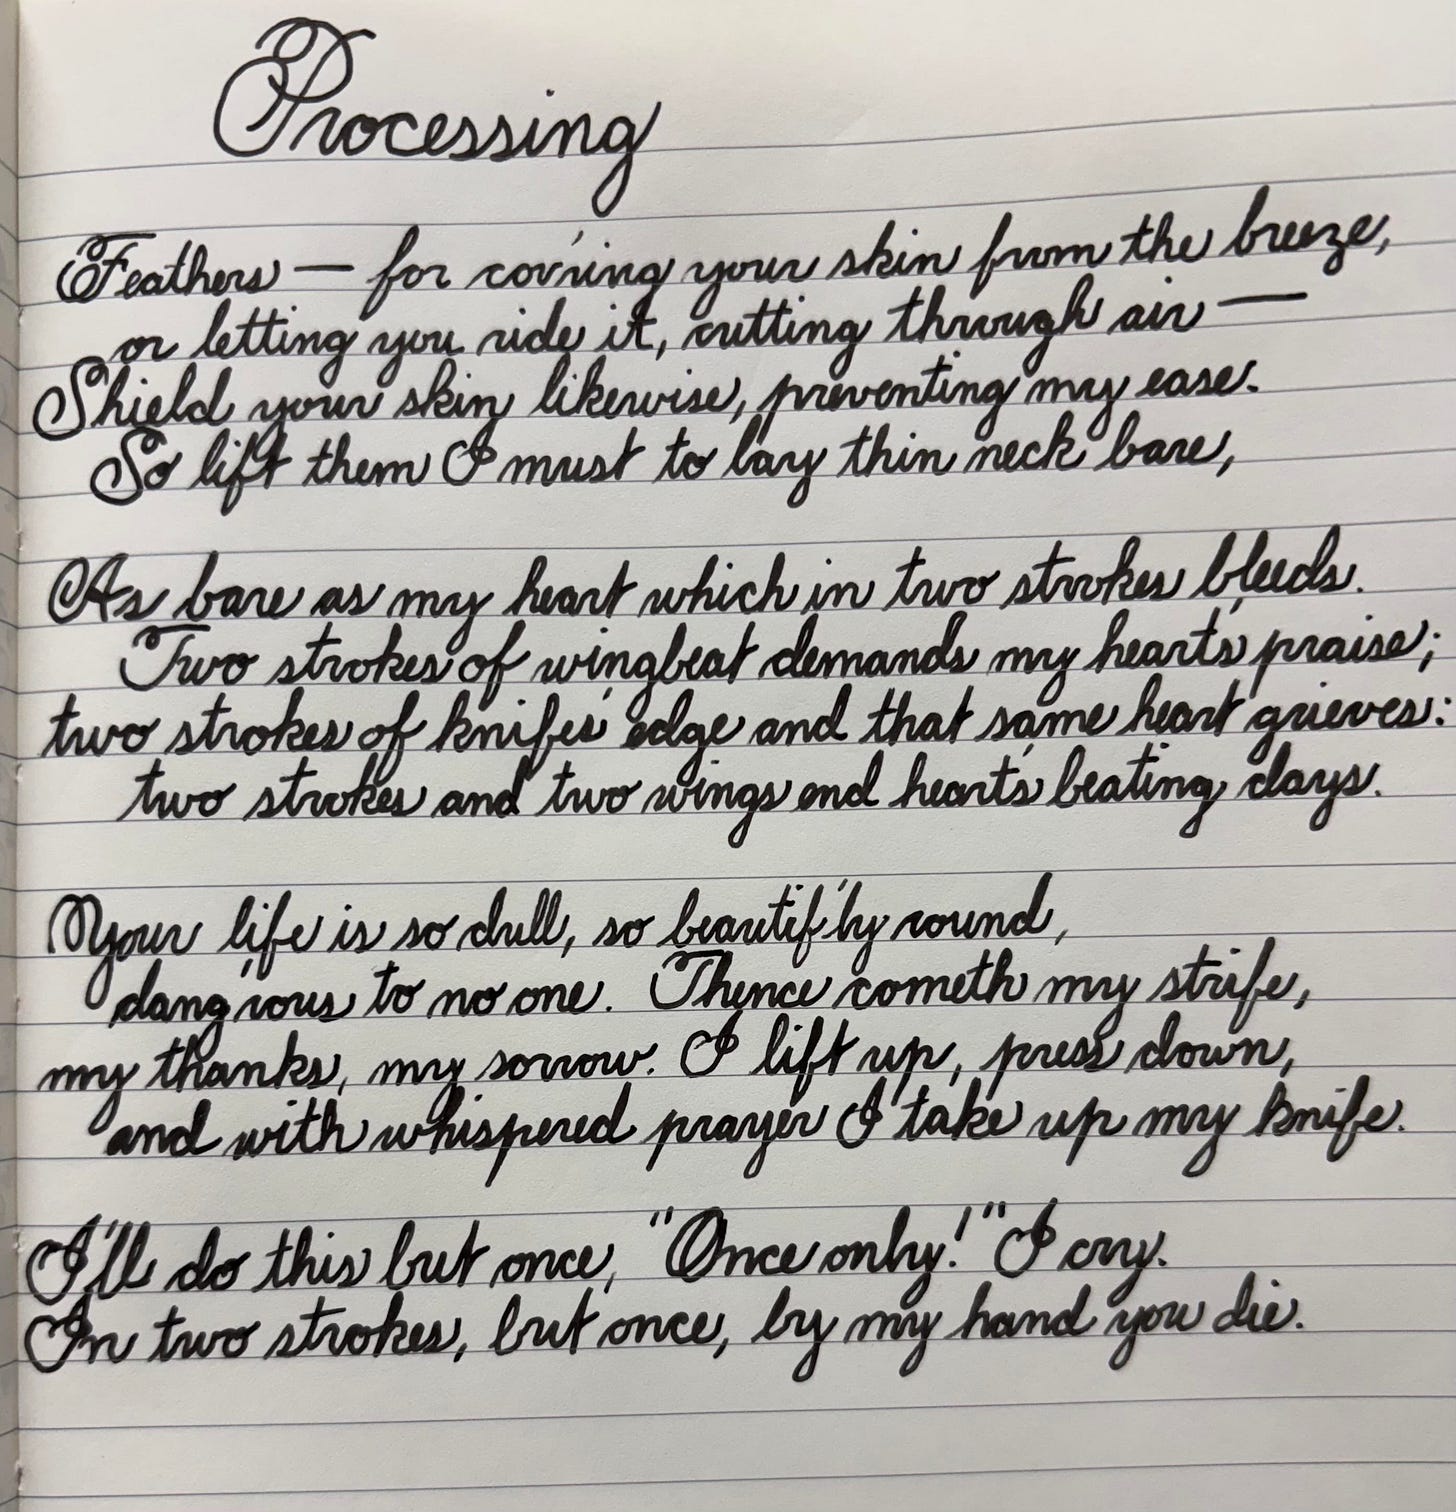 Processing
Feathers — for cov'ring your skin from the breeze,
or letting you ride it, cutting through air —
Shield your skin likewise, preventing my ease.
So lift them I must to lay thin neck bare,
As bare as my heart which in two strokes bleeds.
Two strokes of wingbeat demands my heart's praise;
two strokes of knife's edge and that same heart grieves:
two strokes and two wings end heart's beating days.
Your life is so dull, so beautif'ly round,
dang'rous to no one. Thence cometh my strife,
my thanks, my sorrow. I lift up, press down,
and with whispered prayer I take up my knife.
I'll do this but once, "Once only!" I cry.
In two strokes, but once, by my hand you die.